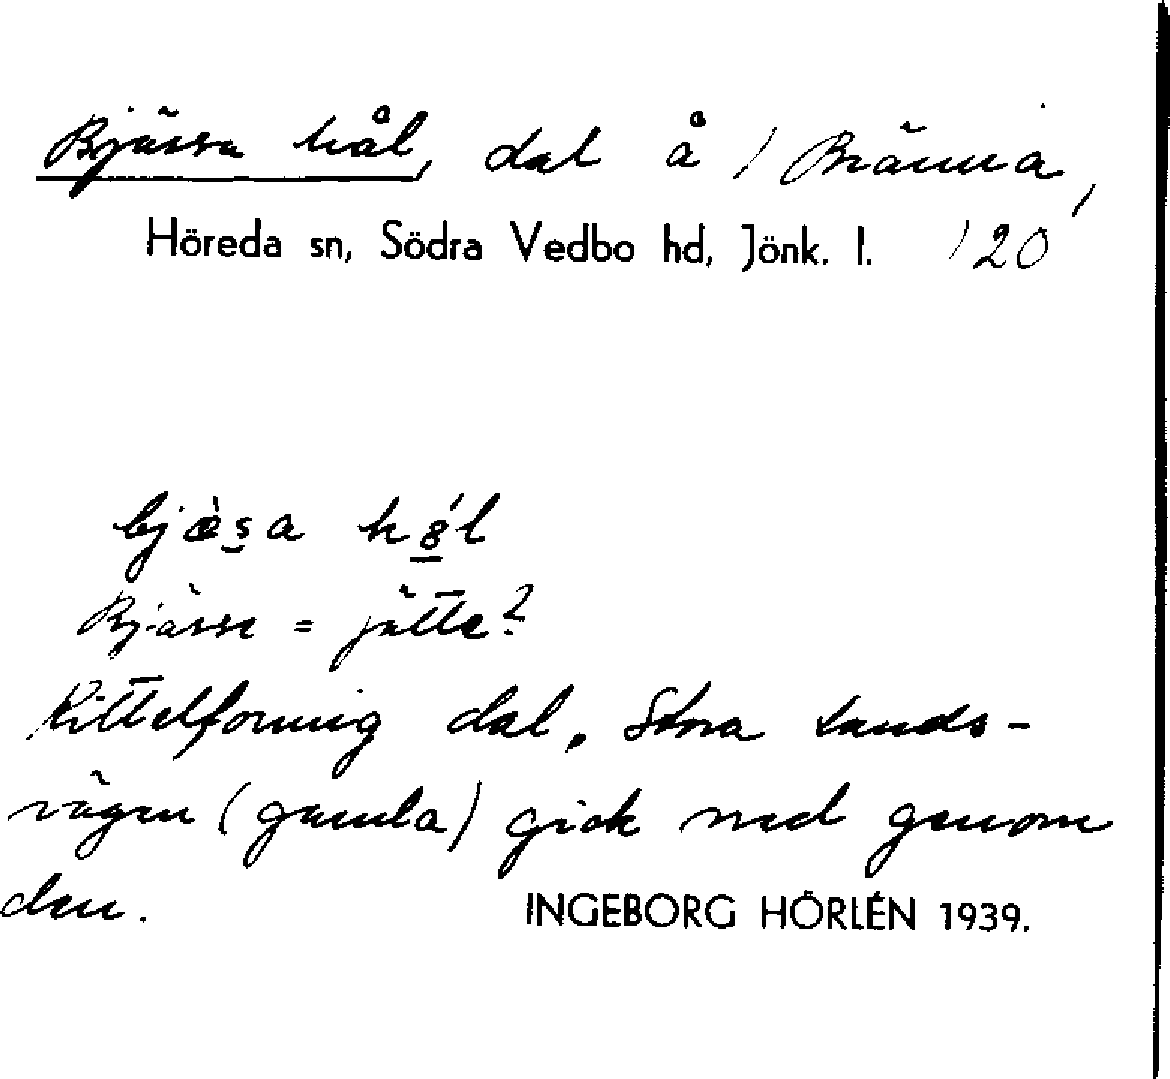 Bjässa hål, dal å / Bränna,
Höreda sn, Södra Vedbo hd, Jönk. l. /20
bjæ̀s̠a hǫ́l
Bjässe = jätte?
Kittelformig dal. Stora Lands-
vägen (gamla) gick ned genom
den.
INGEBORG HÖRLÉN 1939.